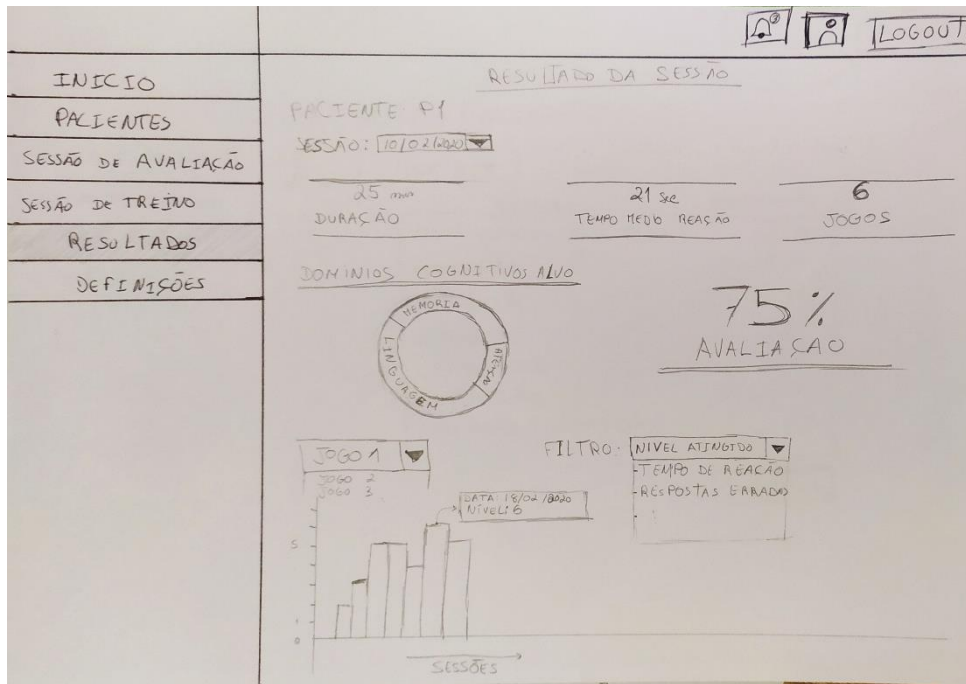 LOGOUT
INICIO
PACIENTES
SESSÃO DE AVALIAÇÃO
SESSÃO DE TREINO
RESULTADOS
DEFINIÇÕES
RESULTADO DA SESSÃO
PACIENTE: P1
SESSÃO: 10/02/2020
25 min
DURAÇÃO
21 sec
TEMPO MEDIO REAÇÃO
6
JOGOS
DOMINIOS COGNITIVOS ALVO
MEMORIA
ATENÇÃO
LINGUAGEM
75%
AVALIAÇAO
JOGO 1
JOGO 2
JOGO 3
FILTRO: NIVEL ATINGIDO
- TEMPO DE REAÇÃO
- RESPOSTAS ERRADAS
DATA: 18/02/2020
NIVEL: 6
5
1
0
SESSÕES